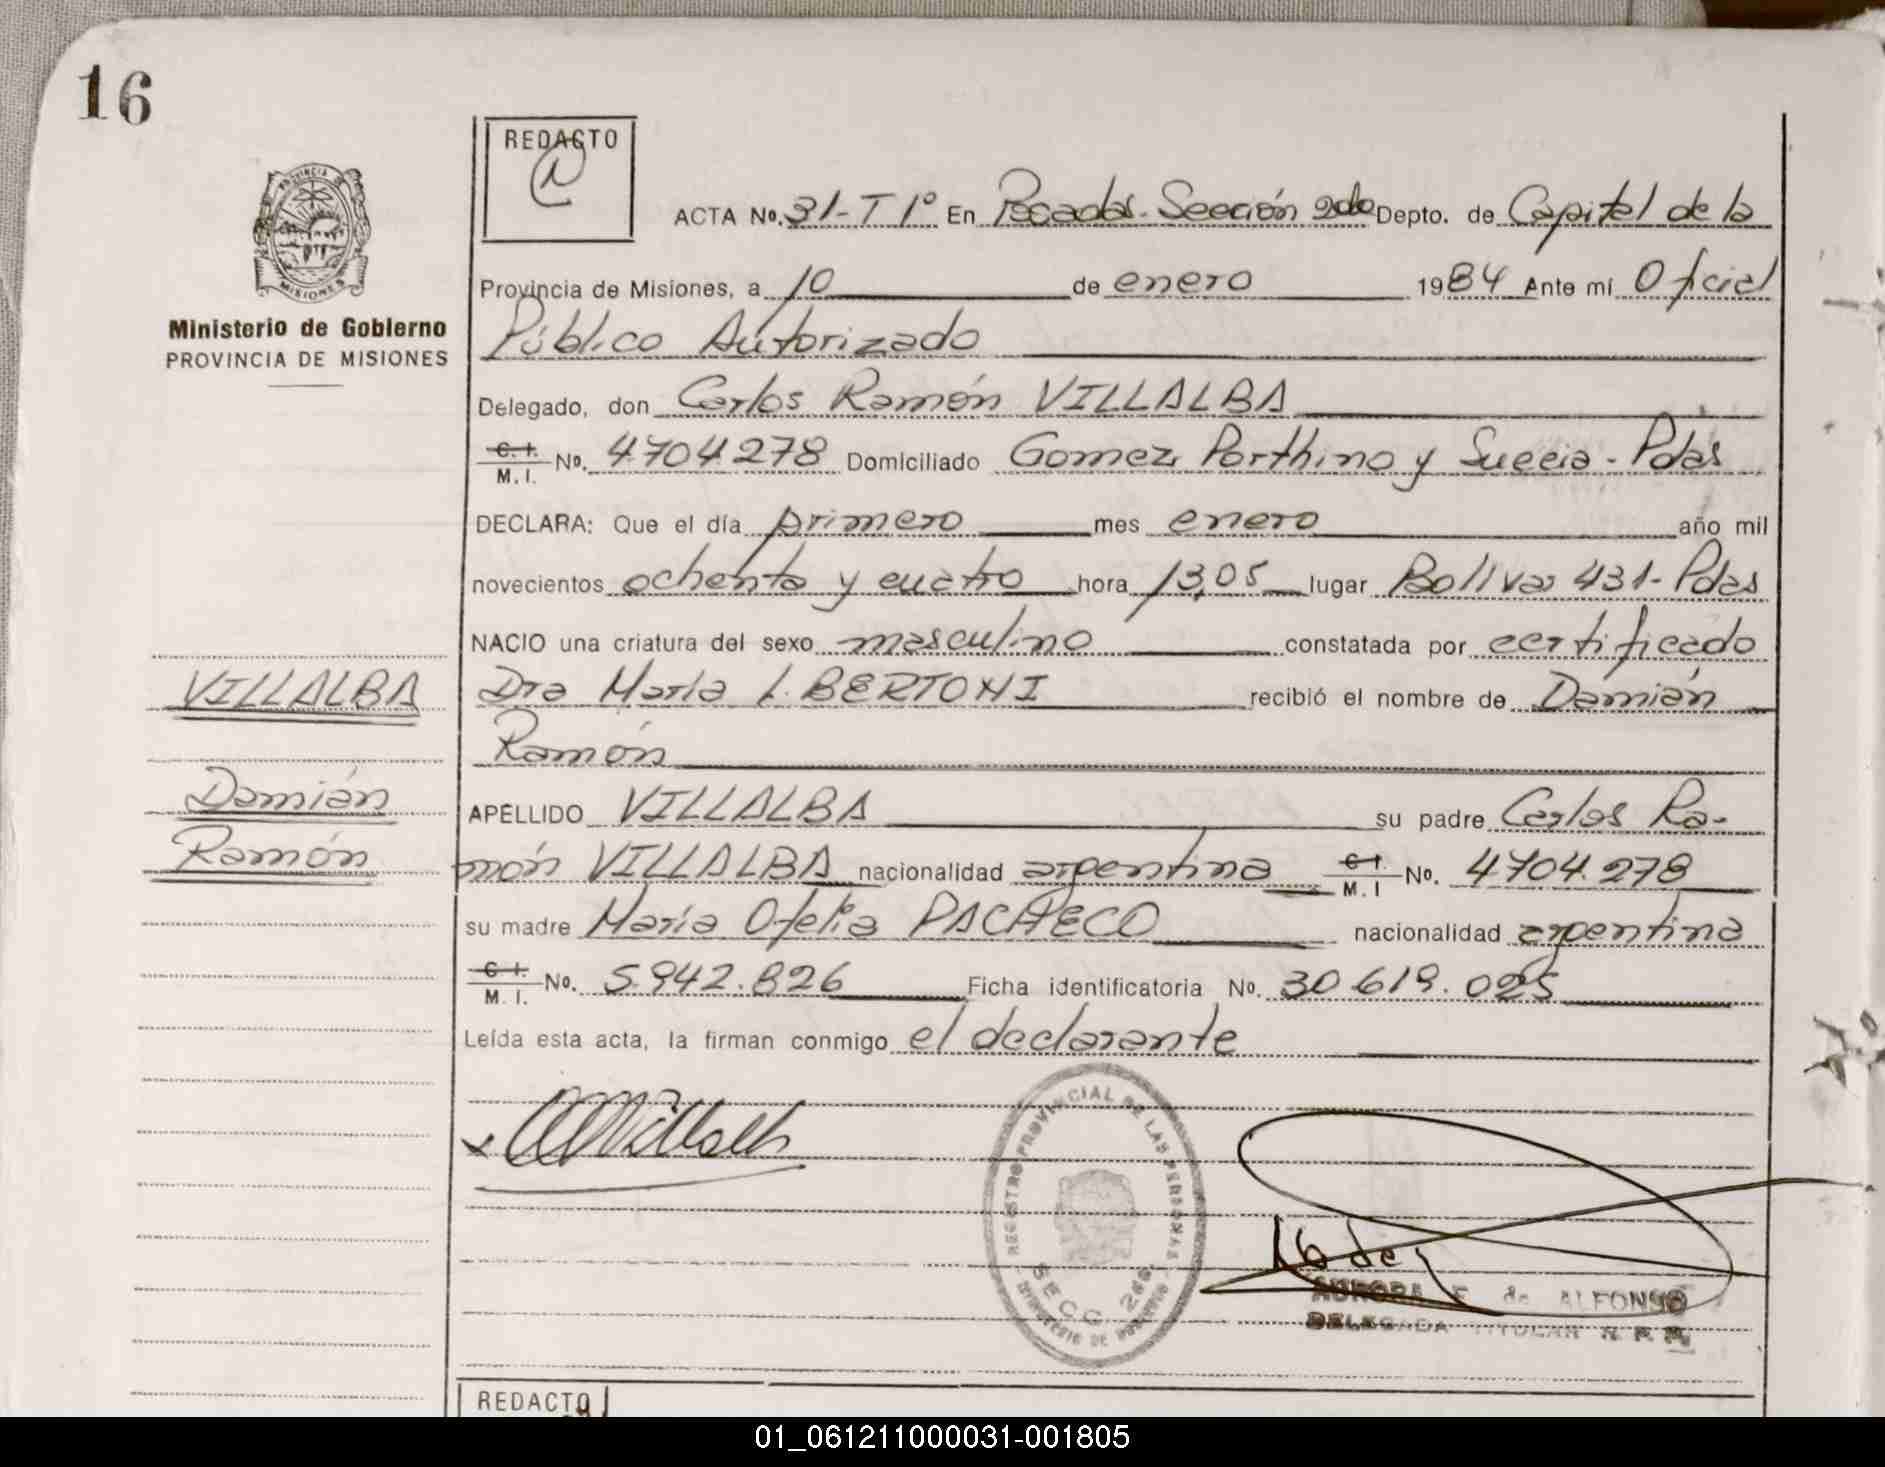 16
REDACTO
ACTA No. 31-T 1º En Posadas-Sección 2da Depto. de Capital de la
PROVINCIA DE
MISIONES
Provincia de Misiones, a 10 de enero 1984 Ante mí Oficial
Ministerio de Gobierno
PROVINCIA DE MISIONES
Público Autorizado
Delegado, don Carlos Ramón VILLALBA
C. I. M. I. No. 4.704.278 Domiciliado Gomez Porthino y Suecia - Pdas
DECLARA: Que el día primero mes enero año mil
novecientos ochenta y cuatro hora 13,05 lugar Bolivar 431- Pdas
NACIO una criatura del sexo masculino constatada por certificado
VILLALBA
Dra María L. BERTONI recibió el nombre de Damián
Ramón
Damián
Ramón
APELLIDO VILLALBA su padre Carlos Ra-
món VILLALBA nacionalidad argentina C. I. M. I No. 4.704.278
su madre María Ofelia PACHECO nacionalidad argentina
C. I. M. I. No. 5.942.826 Ficha identificatoria No. 30.619.025
Leída esta acta, la firman conmigo el declarante
REGISTRO PROVINCIAL DE LAS PERSONAS
SECC. 2da.
MINISTERIO DE GOBIERNO
AURORA F. de ALFONSO
DELEGADA TITULAR R. P. P.
REDACTO
01_061211000031-001805